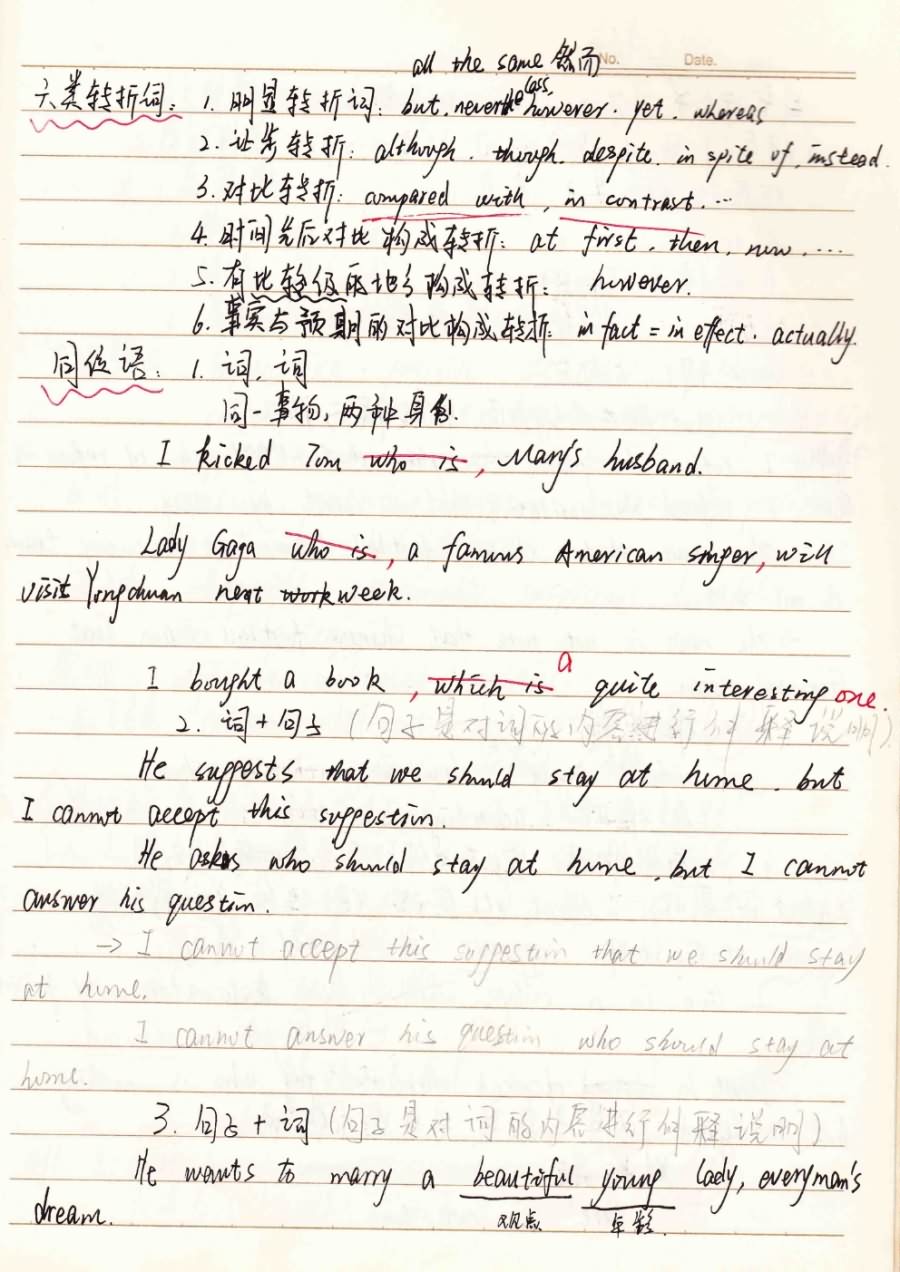 No. Date.
all the same 然而
六类转折词: 1. 明显转折词: but, nevertheless, however. yet. whereas
2. 让步转折: although. though. despite. in spite of, instead.
3. 对比转折: compared with, in contrast. …
4. 时间先后对比构成转折: at first, then, now, …
5. 有比较级的地方构成转折: however.
6. 事实与预期的对比构成转折: in fact = in effect. actually.
同位语: 1. 词, 词
同一事物, 两种身份.
I kicked Tom who is, Mary's husband.
Lady Gaga who is, a famous American singer, will
visit Yongchuan next work week.
I bought a book, which is a quite interesting one.
2. 词+句子 (句子是对词的内容进行解释说明)
He suggests that we should stay at home. but
I cannot accept this suggestion.
He asks who should stay at home, but I cannot
answer his question.
→ I cannot accept this suggestion that we should stay
at home.
I cannot answer his question who should stay at
home.
3. 句子+词 (句子是对词的内容进行解释说明)
He wants to marry a beautiful young lady, everyman's
dream. 观点 年龄